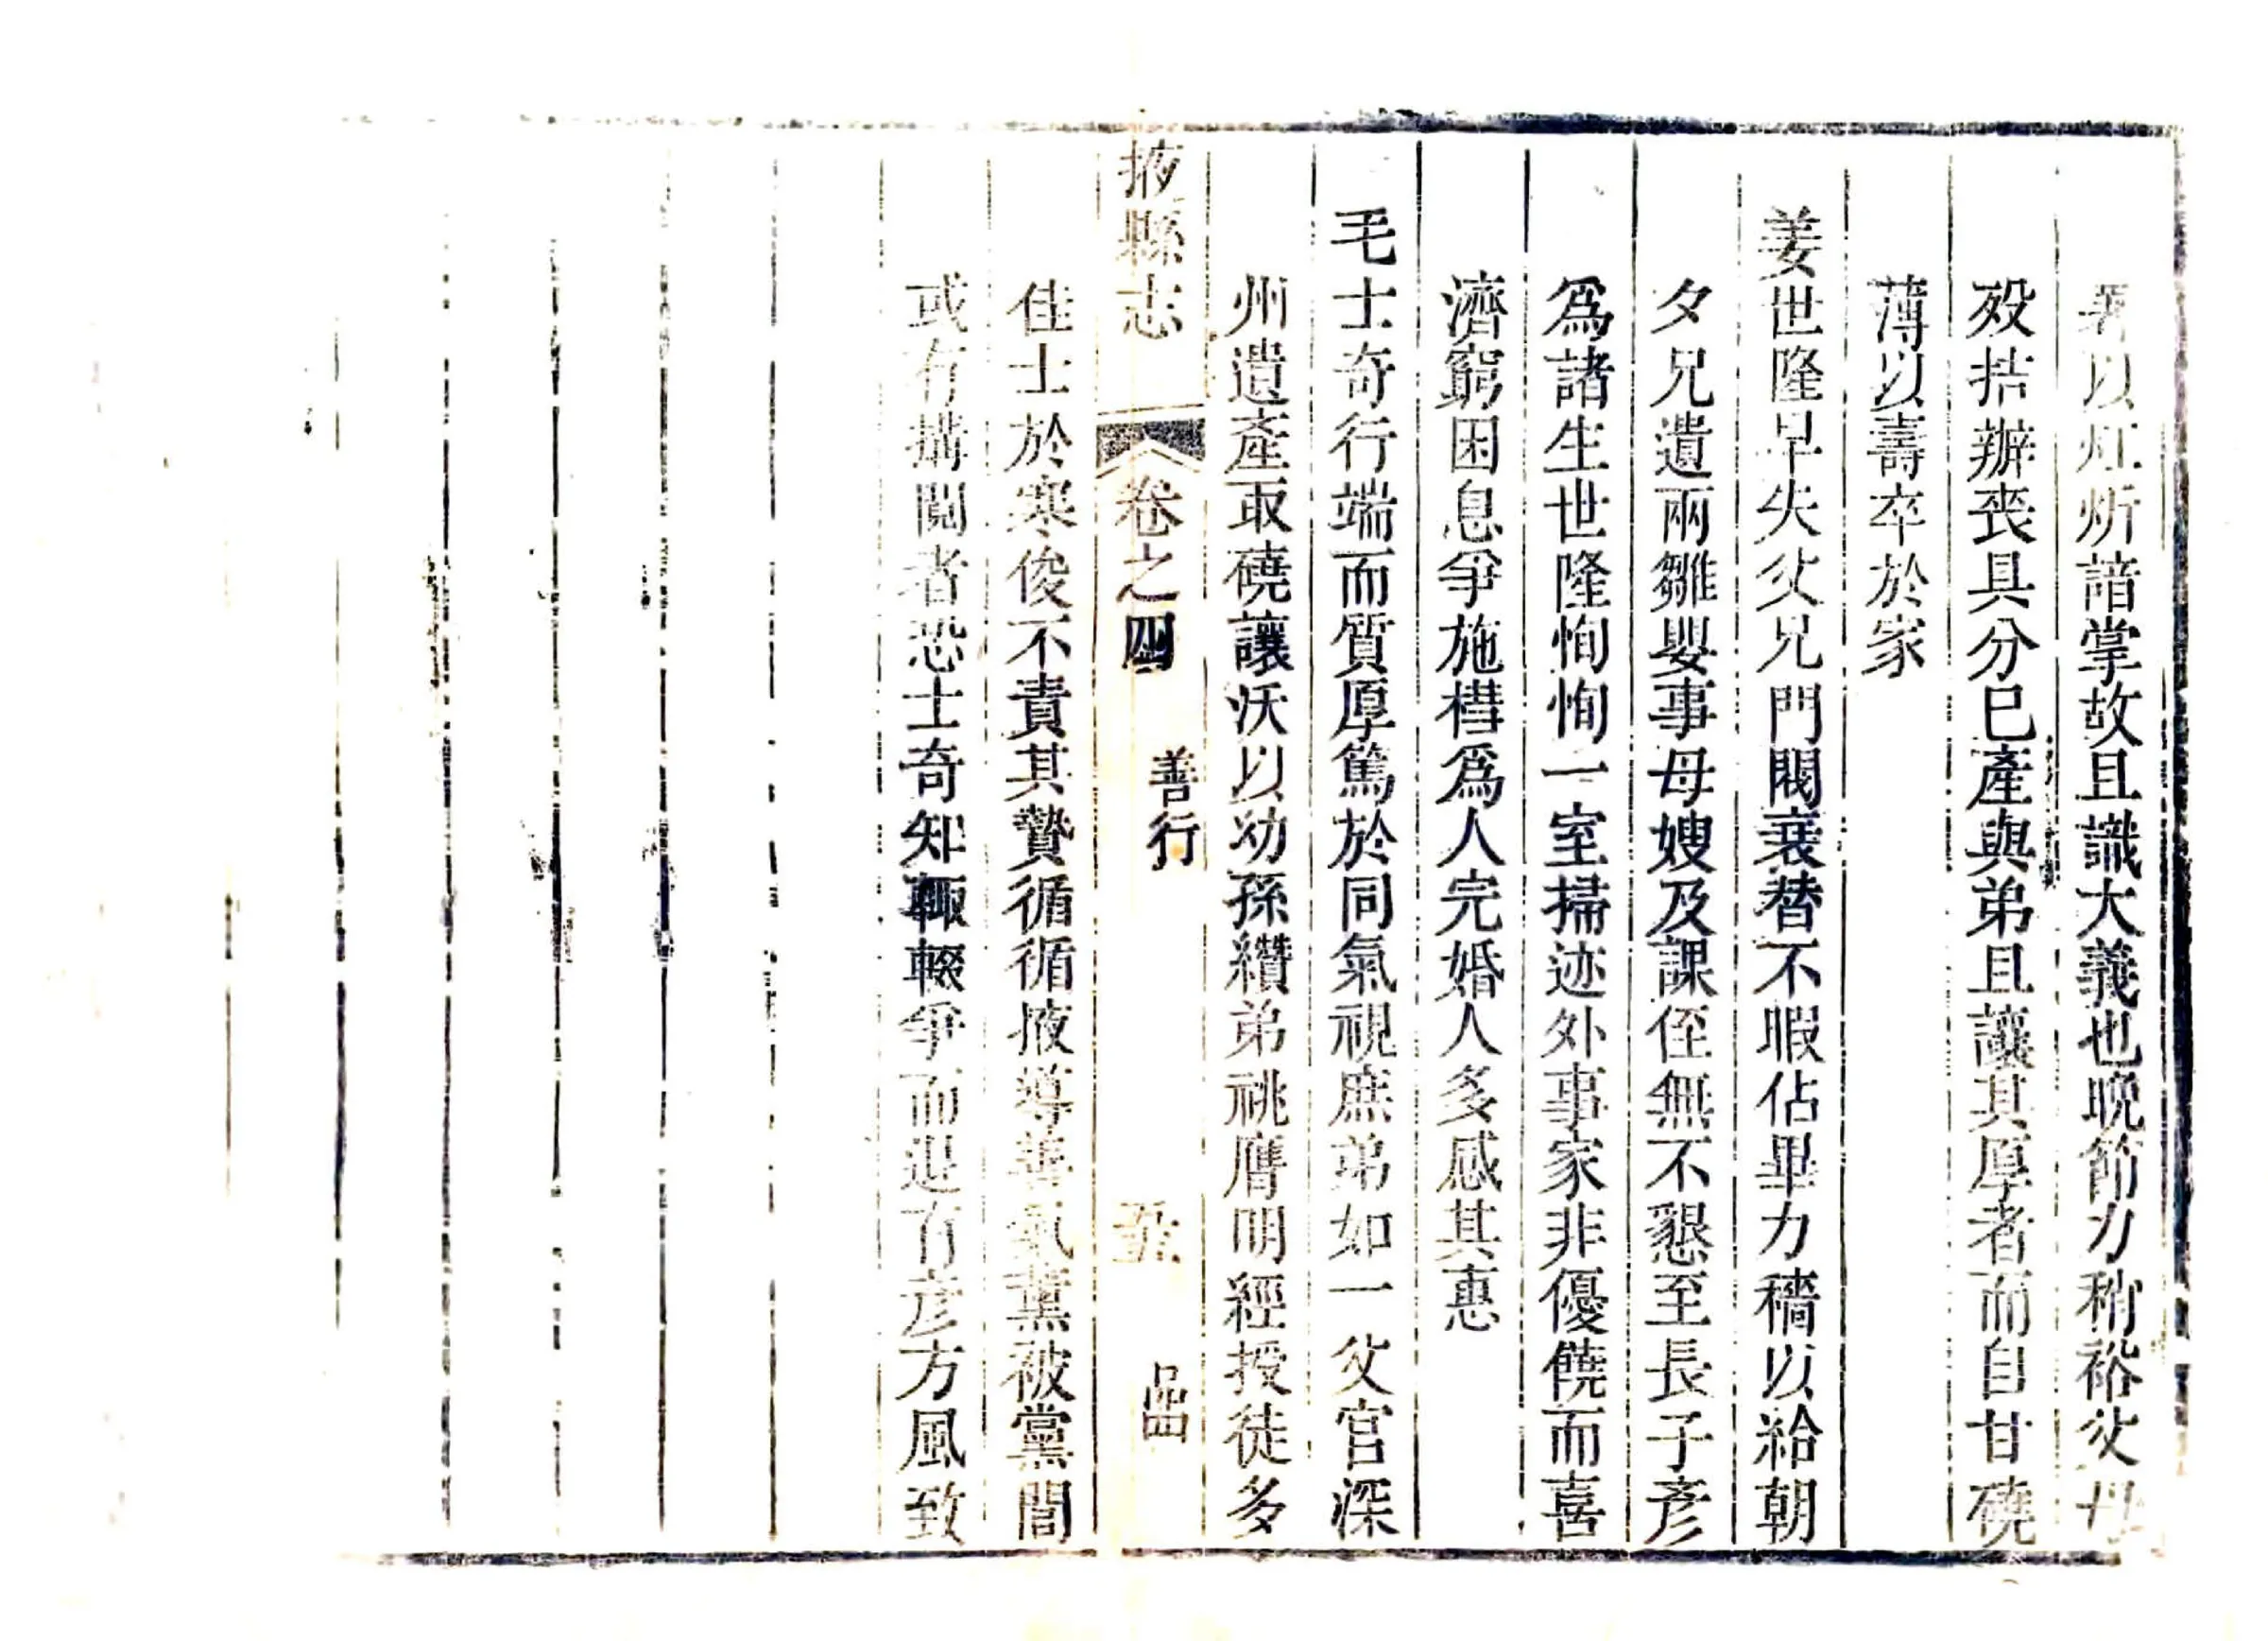 署以炘諳掌故且識大義也晚節力稍裕父母
歿拮辦喪具分已產與弟且讓其厚者而自甘磽
薄以壽卒於家
姜世隆早失父兄門閥衰替不暇佔畢力穡以給朝
夕兄遺兩雛嬰事母嫂及課侄無不懇至長子彥
爲諸生世隆恂恂一室掃迹外事家非優饒而喜
濟窮困息爭施槥爲人完婚人多感其惠
毛士奇行端而質厚篤於同氣視庶弟如一父官深
州遺產取磽讓沃以幼孫纘弟祧膺明經授徒多
掖縣志 卷之四 善行
佳士於寒俊不責其贄循循掖導善氣薰被黨閭
或有搆鬩者恐士奇知輒輟爭而退有彥方風致